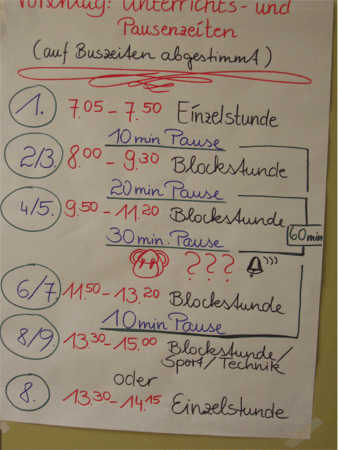 Vorschlag: Unterrichts- und
Pausenzeiten
(auf Buszeiten abgestimmt)
1. 7.05 - 7.50 Einzelstunde
10 min Pause
2/3. 8.00 - 9.30 Blockstunde
20 min Pause
4/5. 9.50 - 11.20 Blockstunde
60 min
30 min. Pause
???
6/7 11.50 - 13.20 Blockstunde
10 min Pause
8/9. 13.30 - 15.00 Blockstunde/
Sport/Technik
oder
8. 13.30 - 14.15 Einzelstunde